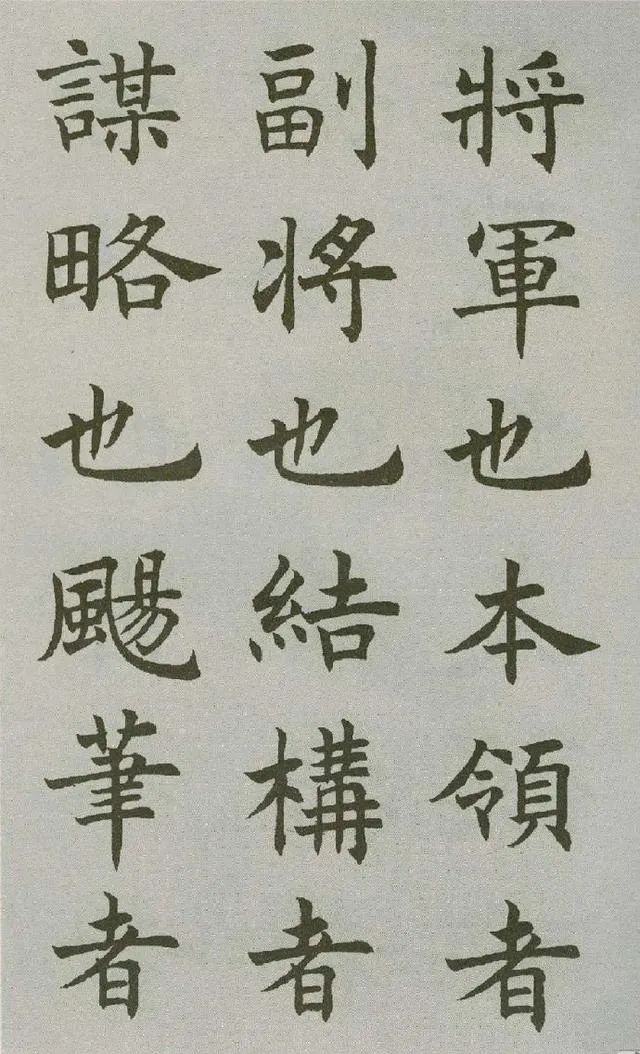 將軍也本領者
副將也結構者
謀略也颺筆者